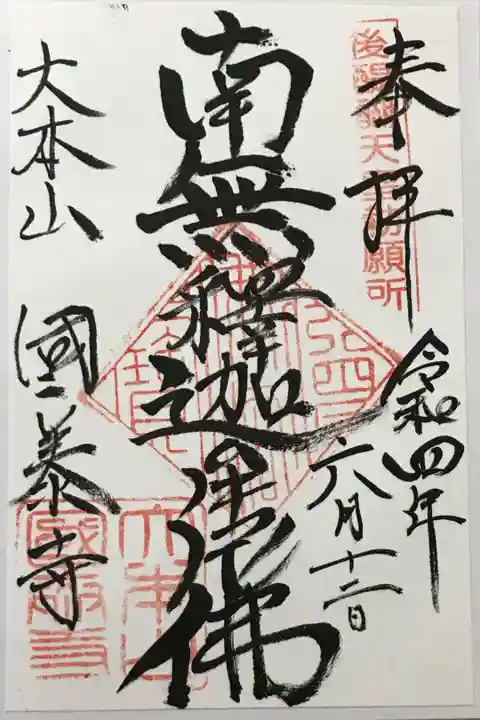 奉拝
後醍醐天皇勅願所
令和四年
六月十二日
南無釋迦牟尼佛
大本山
國泰寺
大本山
國泰寺